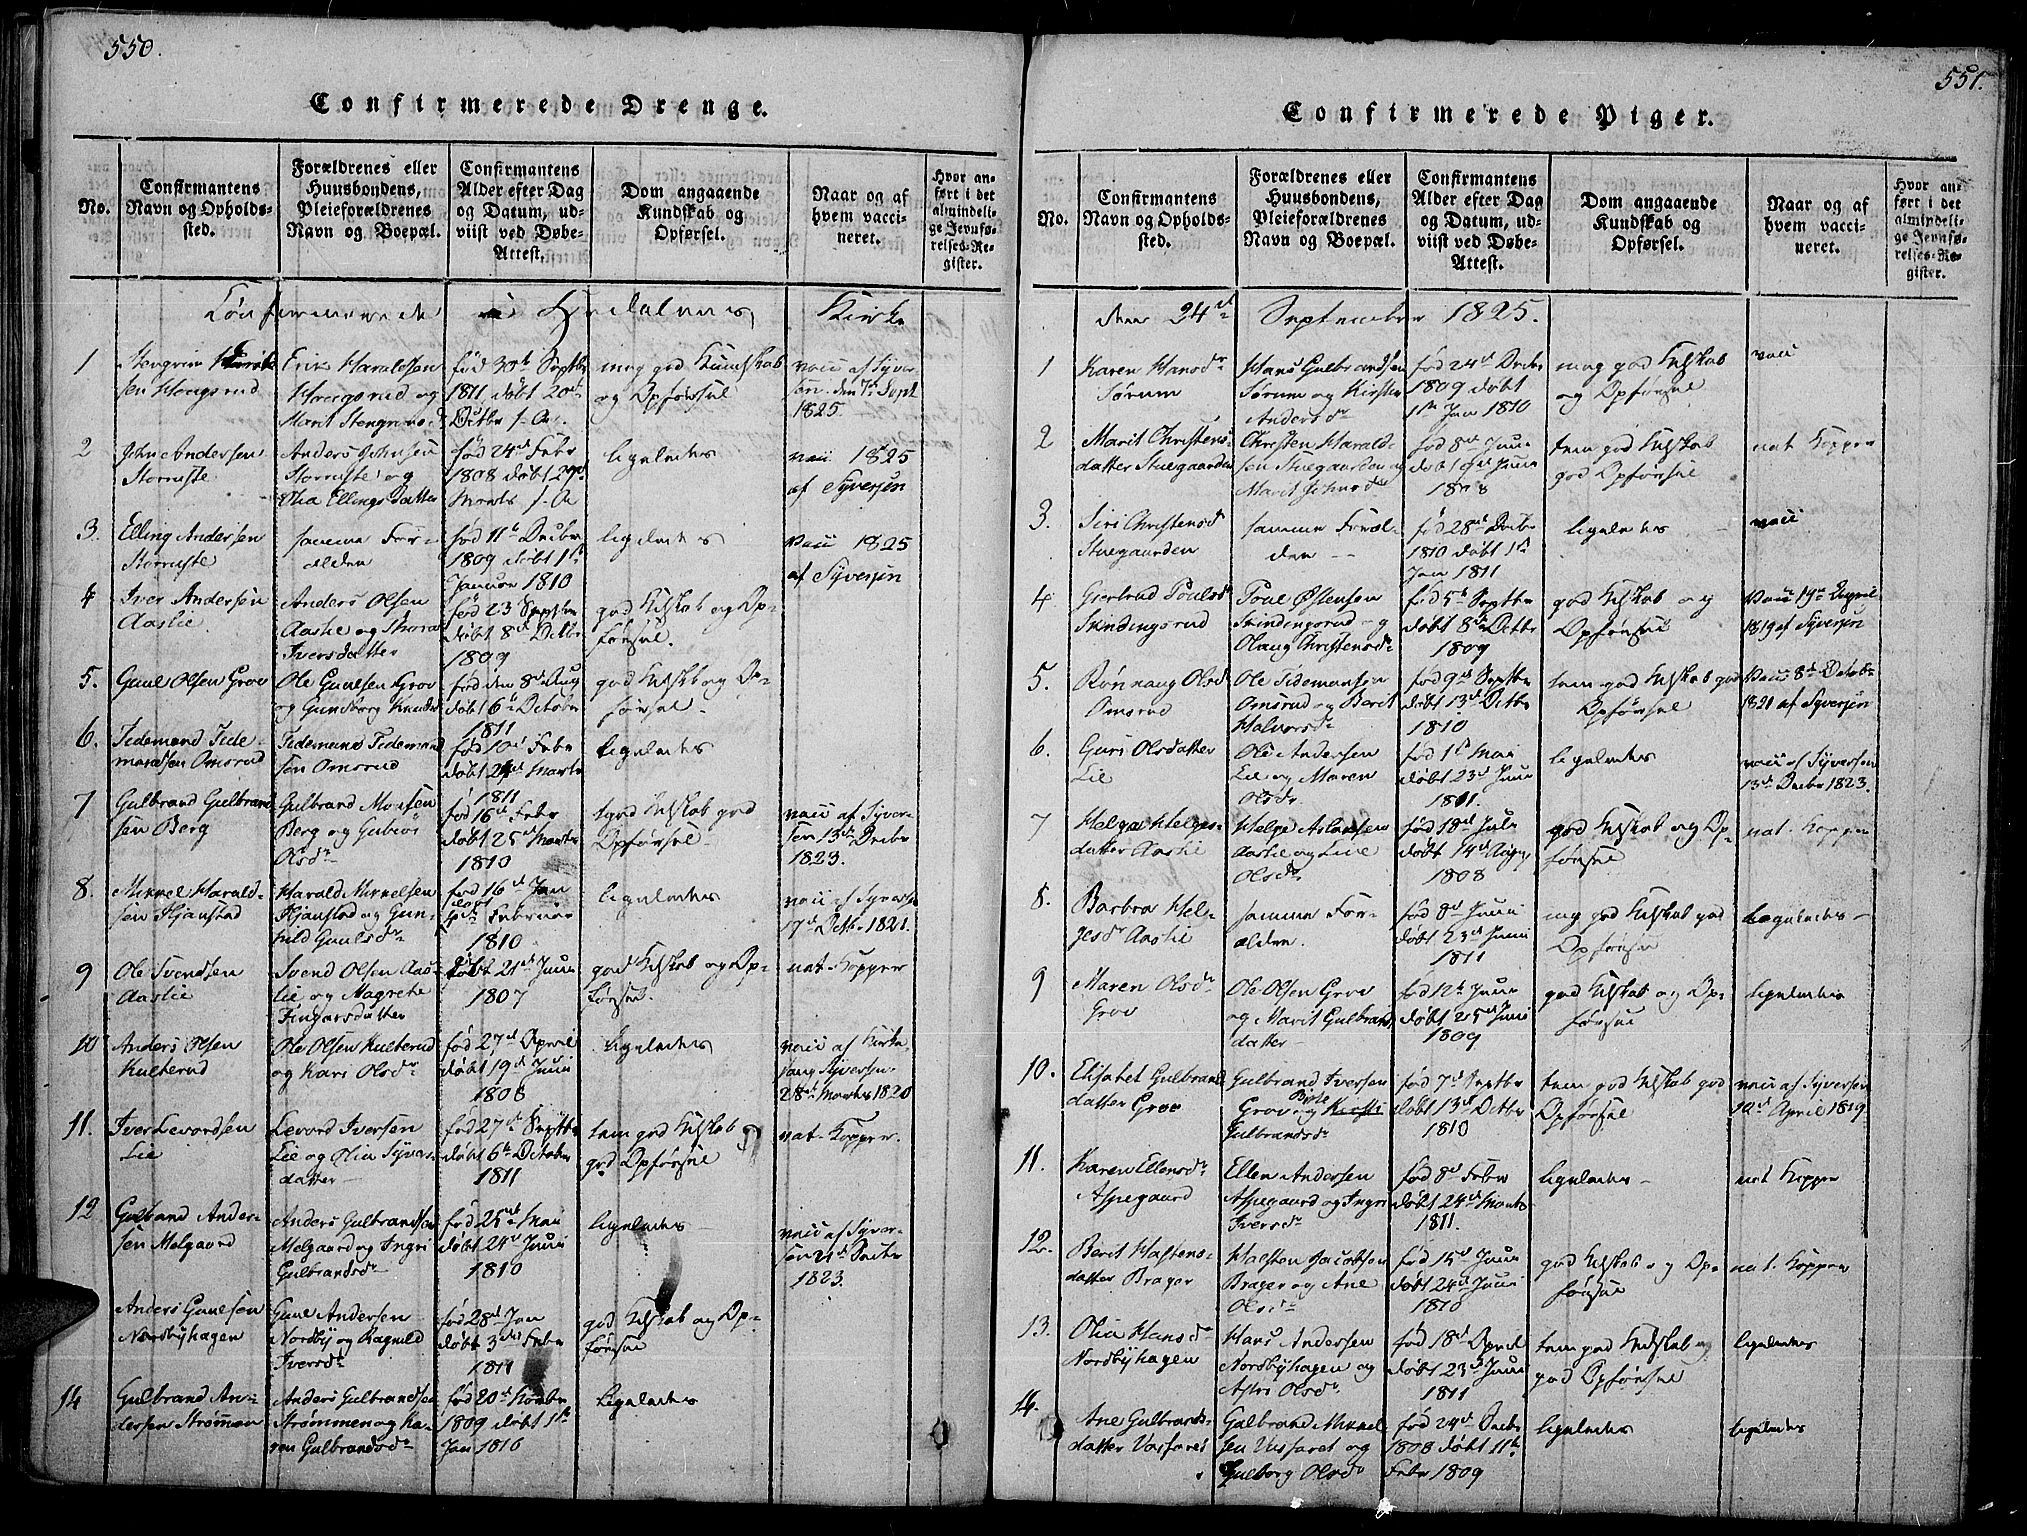 550.
Confirmerede Drenge.
No.
Confirmantens
Navn og Opholds-
sted.
Forældrenes eller
Huusbondens,
Pleieforældrenes
Navn og Boepæl.
Confirmantens
Alder efter Dag
og Datum, ud-
viist ved Døbe-
Attest.
Dom angaaende
Kundskab og
Opførsel.
Naar og af
hvem vacci-
neret.
Hvor an-
ført i det
almindeli-
ge Jevnfø-
relses-Re-
gister.
Kirke
1
sen Haugsrud
Erik Haraldsen
Haugsrud og
Marit Stengrimsd
fød 30te Septbr
1811 døbt 20de
Octbr s. A.
meg god Kundskab
og Opførsel
vacc af Syver-
sen den 7de Sept
1825.
2
John Andersen
Storruste
Anders Johnsen
Storruste og
Olia Ellingsdatter
fød 24de Febr
1808 døbt 29de
Marts s. A
ligeledes
vacc 1825
af Syversen
3.
Elling Andersen
Storruste
samme For-
ælden
fød 11te Decbr
1809 døbt 1ste
Januar 1810
ligeledes
vacc 1825
af Syversen
4
Iver Andersen
Aaslie
Anders Olsen
Aaslie og
Iversdatter
fød 23de Septbr
døbt 8de Octbr
1809
god Kdskab og Op-
førsel.
5.
Guul Olsen Grov
Ole Guulsen Grov
og Gundborg Knudsd
fød den 8de Aug
døbt 6te Octobr
1811
god Kdskb og Op-
førsel.
6.
Tidemand Tide-
mandsen Omsrud
Tidemand Tidemand
sen Omsrud
fød 10de Febr
døbt 24de Marts
1811
ligeledes
7
Gulbrand Gulbrand
sen Berg
Gulbrand Monsen
Berg og Gubiør
Olsdr
fød 16de Febr
døbt 25de Marts
1810
tgod Kdskab god
Opførsel.
vacc af Syver-
sen 13de Decbr
1823.
8.
Mikkel Harald-
sen Kjanstad
Harald Mikkelsen
Kjanstad og Gun-
hild Guulsdr
fød 16de Jan
døbt
4de Februar
1810.
ligeledes
vacc af Syversen
17de Octb. 1821.
9
Ole Svendsen
Aaslie
Svend Olsen Aas-
lie og Magrete
Fingarsdatter
døbt 21de Juni
1807
god Kdskab og Op-
førsel.
nat. Kopper
10
Anders Olsen
Kulterud
Ole Olsen Kulterud
og Kari Olsdr
fød 27de April
døbt 19de Juni
1808
ligeledes
vacc af Kirke-
sang Syversen
28de Marts 1820
11.
Iver Levordsen
Lie
Levord Iversen
Lie og Olia Syvers-
datter
fød 27de Septbr
døbt 6te Octobr
1811
tem god Kdskab
god Opførsel
nat. Kopper.
12
Gulbrand Ander-
sen Melgaard
Anders Gulbrandsen
Melgaard og Ingri
Gulbrandsdr
fød 25de Mai
døbt 24de Juni
1810
ligeledes
vacc af Syver-
sen 21de Decbr
1823.
Anders Guulsen
Nordbyhagen
Guul Andersen
Nordby og Ragnild
Iversdr
fød 28de Jan
døbt 3die Febr
1811
god Kdskab og Op-
førsel
14
Gulbrand An-
dersen Strømmen
Anders Gulbrandsen
Strømmen og Ka-
ren Gulbrandsdr
fød 20de Novbr
1809 døbt 1ste
Jan 1810
ligeledes
551.
Confirmerede Piger.
No.
Confirmantens
Navn og Opholds-
sted.
Forældrenes eller
Huusbondens,
Pleieforældrenes
Navn og Boepæl.
Confirmantens
Alder efter Dag
og Datum, ud-
viist ved Døbe-
Attest.
Dom angaaende
Kundskab og
Opførsel.
Naar og af
hvem vacci-
neret.
Hvor an-
ført i det
almindeli-
ge Jevnfø-
relses-Re-
gister.
den 24de September 1825.
1
Karen Hansdr
Sørum
Hans Gulbrandsen
Sørum og Kirsten
Andersdr
fød 24de Decbr
1809 døbt
1ste Jan 1810
meg god Kdskab
og Opførsel
vacc
2
Marit Christens-
datter Stuegaarden
Christen Harald-
sen Stuegaarden og
Marit Johnsdr
fød 8de Juni
døbt Juni
1808
tem god Kdskab
god Opførsel
nat. Kopper
3.
Siri Christensd
Stuegaarden
samme Foræl-
dre
fød 28de Decbr
1810 døbt 1ste
Jan 1811
ligeledes
vacc
4
Giertrud Poulsd
Skindingsrud
Poul Østensen
Skindingsrud og
Olaug Christensdr
fød 5te Septbr
døbt 8de Octbr
1809
god Kdskab og
Opførsel
vacc 19de April
1819 af Syversen
5.
Rønnaug Olsd
Omsrud
Ole Tidemansen
Omsrud og Berit
Halvorsdr
fød 9de Septbr
døbt 13de Octbr
1810
tem god Kdskab god
Opførsel
vacc 8de Octobr
1821 af Syversen
6.
Guri Olsdatter
Lie
Ole Andersen
Lie og Maren
Olsdr
fød 1ste Mai
døbt 23de Juni
1811.
ligeledes
vacc af Syversen
13de Decbr 1823.
7
Helga Helges-
datter Aaslie
Helge Aslaksen
Aaslie og Lisle
Olsdr
fød 18de Juli
døbt 14de Aug
1808
god Kdskab og Op-
førsel
nat. Kopper
8.
Barbra Hel-
gesdr Aaslie
samme For-
ælden.
fød 8de Juni
døbt 23de Juni
1811
meg god Kdskab god
Opførsel
Ligeledes
9
Maren Olsdr
Grov
Ole Olsen Grov
og Marit Gulbrands
datter
fød 12te Juni
døbt 25de Juni
1809
god Kdskab og Op-
førsel
ligeledes
10.
Elisabet Gulbrands
datter Grov
Gulbrand Iversen
Grov og
Gulbrandsdr
fød 7de Septbr
døbt 13de Octbr
1810
tem god Kdskab god
Opførsel
vacc af Syversen
19de April 1819.
11.
Karen Ellensdr
Aspegaard
Ellen Andersen
Aspegaard og Ingri
Iversdr
fød 8de Febr
døbt 24de Marts
1811.
ligeledes
nat Kopper
12.
Berit Halstens-
datter Brager
Halsten Jacobsen
Brager og Ane
Olsdr
fød 15de Juni
døbt 24de Juni
1810
god Kdskab og Op-
førsel
nat. Kopper
13.
Olia Hansdr
Nordbyhagen
Hans Andersen
Nordbyhagen og
Astri Olsdr
fød 18de April
døbt 23de Juni
1811
tem god Kdskab og
god Opførsel
ligeledes
14.
Ane Gulbrands-
datter Vasfaret
Gulbrand Mikkel
sen Vasfaret og
Gulborg Olsdr
fød 24de Decbr
1808 døbt 11te
Febr 1809
ligeledes
ligeledes